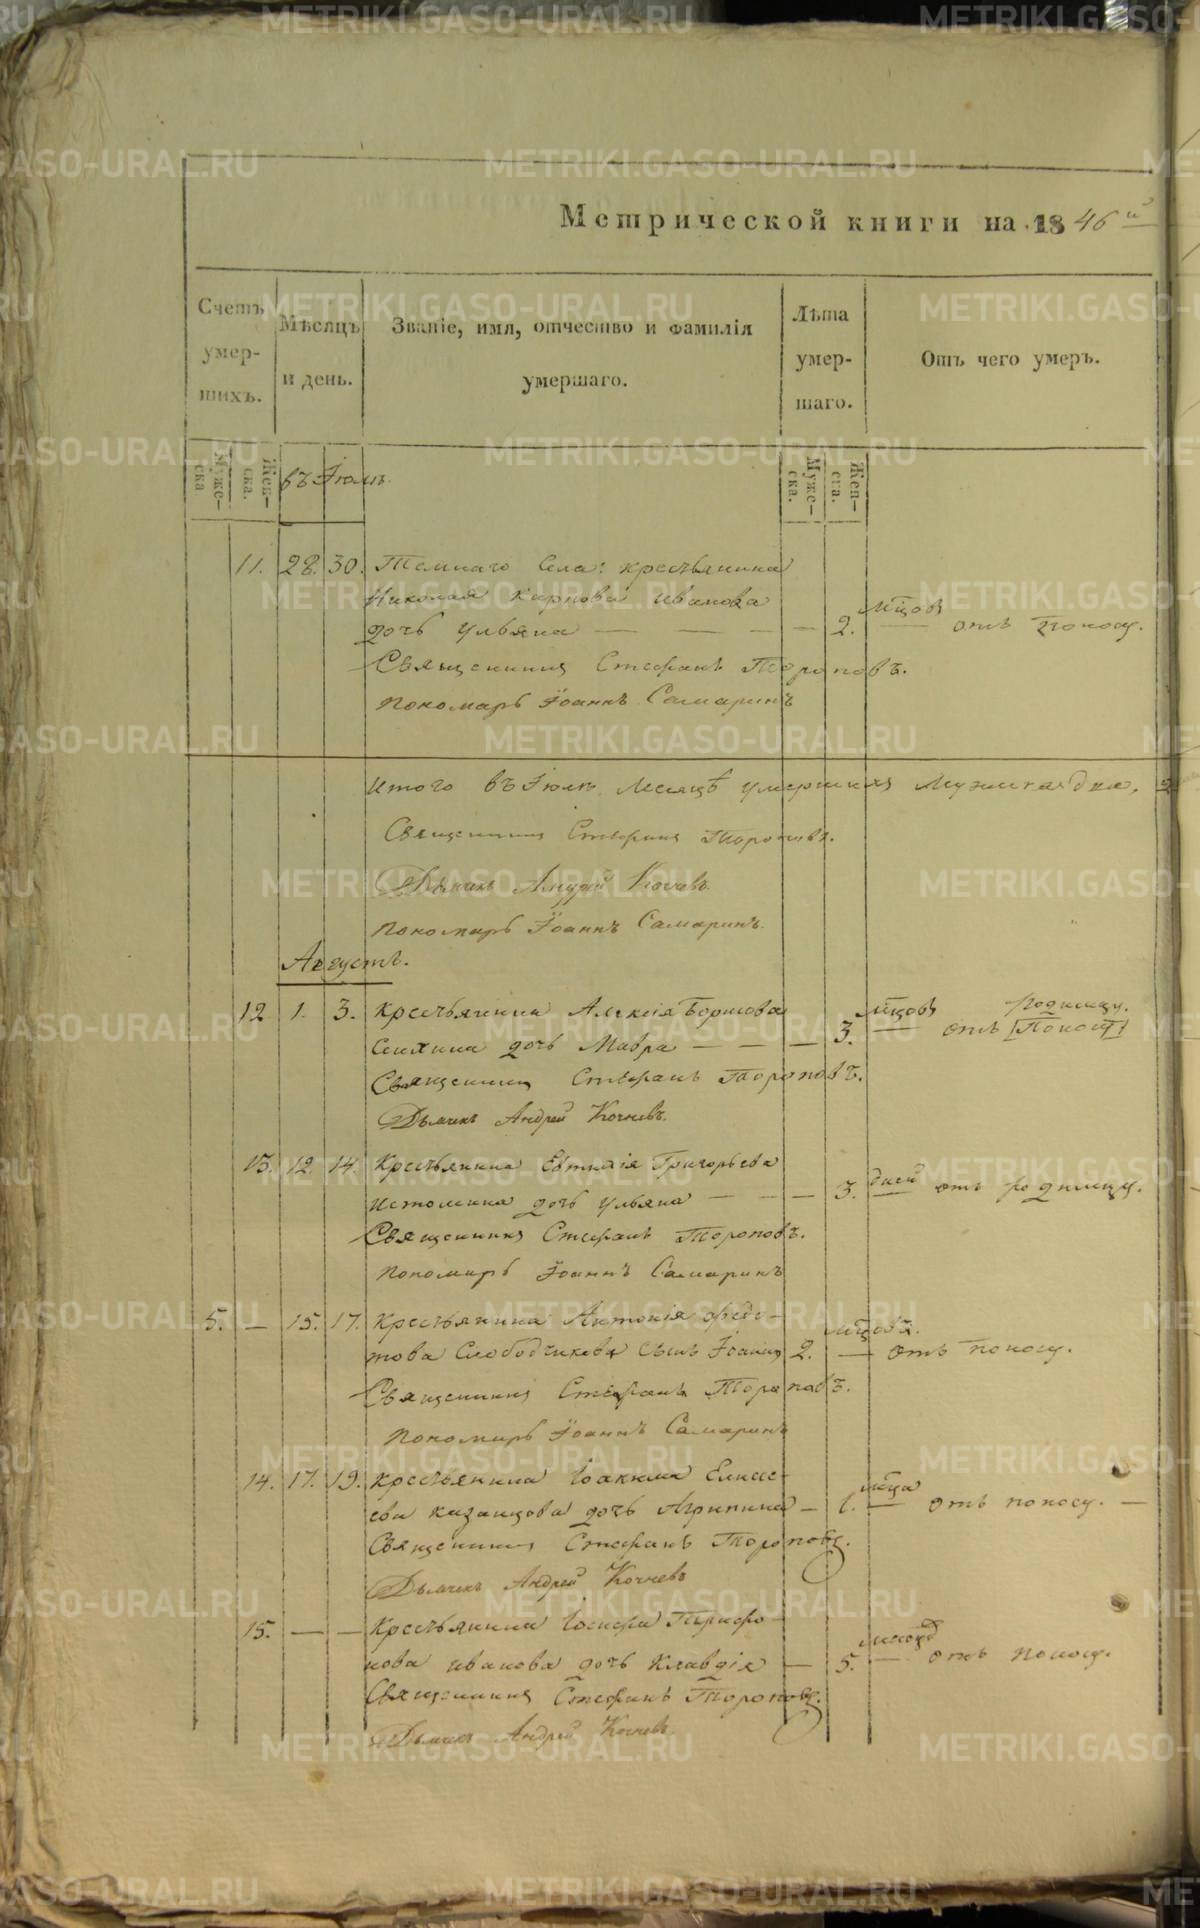 Метрической книги на 1846й
Счетъ умер-шихъ.
Мѣсяцъ и день.
Званіе, имя, отчество и фамилія умершаго.
Лѣта умер-шаго.
Отъ чего умеръ.
Муже-ска
Жен-ска.
въ Іюлѣ.
Муже-ска.
Жен-ска.
11. 28. 30. Темнаго Села: крестьянина
Николая Карпова Иванова
дочь Ульяна — — — — 2. мѣцовъ отъ поносу.
Священникъ Стефанъ Тороповъ.
пономарь Іоаннъ Самаринъ
итого въ Іюлѣ месяцѣ умершихъ Мужска два, 2
Священникъ Стефанъ Тороповъ.
Дьячекъ Андрей Кочневъ.
пономарь Іоаннъ Самаринъ.
Августъ.
12 1. 3. крестьянина Алексія Борисова родимцу.
Сенхина дочь Мавра — — — 3. мѣцовъ отъ [Поносу]
Священникъ Стефанъ Тороповъ.
Дьячекъ Андрей Кочневъ.
13. 12. 14. Крестьянина Евтихія Григорьева
Истомина дочь Ульяна — — — 3. дней отъ родимцу.
Священникъ Стефанъ Тороповъ.
пономарь Іоаннъ Самаринъ
5. — 15. 17. крестьянина Антонія Федо-
това Слободчикова сынъ Іоаннъ 2. мѣцовъ. — отъ поносу.
Священникъ Стефанъ Тороповъ.
пономарь Іоаннъ Самаринъ
14. 17. 19. крестьянина Іоакима Елисе-
ева казанцова дочь Агрипина — 1. мѣца отъ поносу. —
Священникъ Стефанъ Тороповъ.
Дьячекъ Андрей Кочневъ
15. — — Крестьянина Іосифа Трифо-
нова иванова дочь Клавдія — 5. месяцъ отъ поносу.
Священникъ Стефанъ Тороповъ.
Дьячекъ Андрей Кочневъ.
METRIKI.GASO-URAL.RU